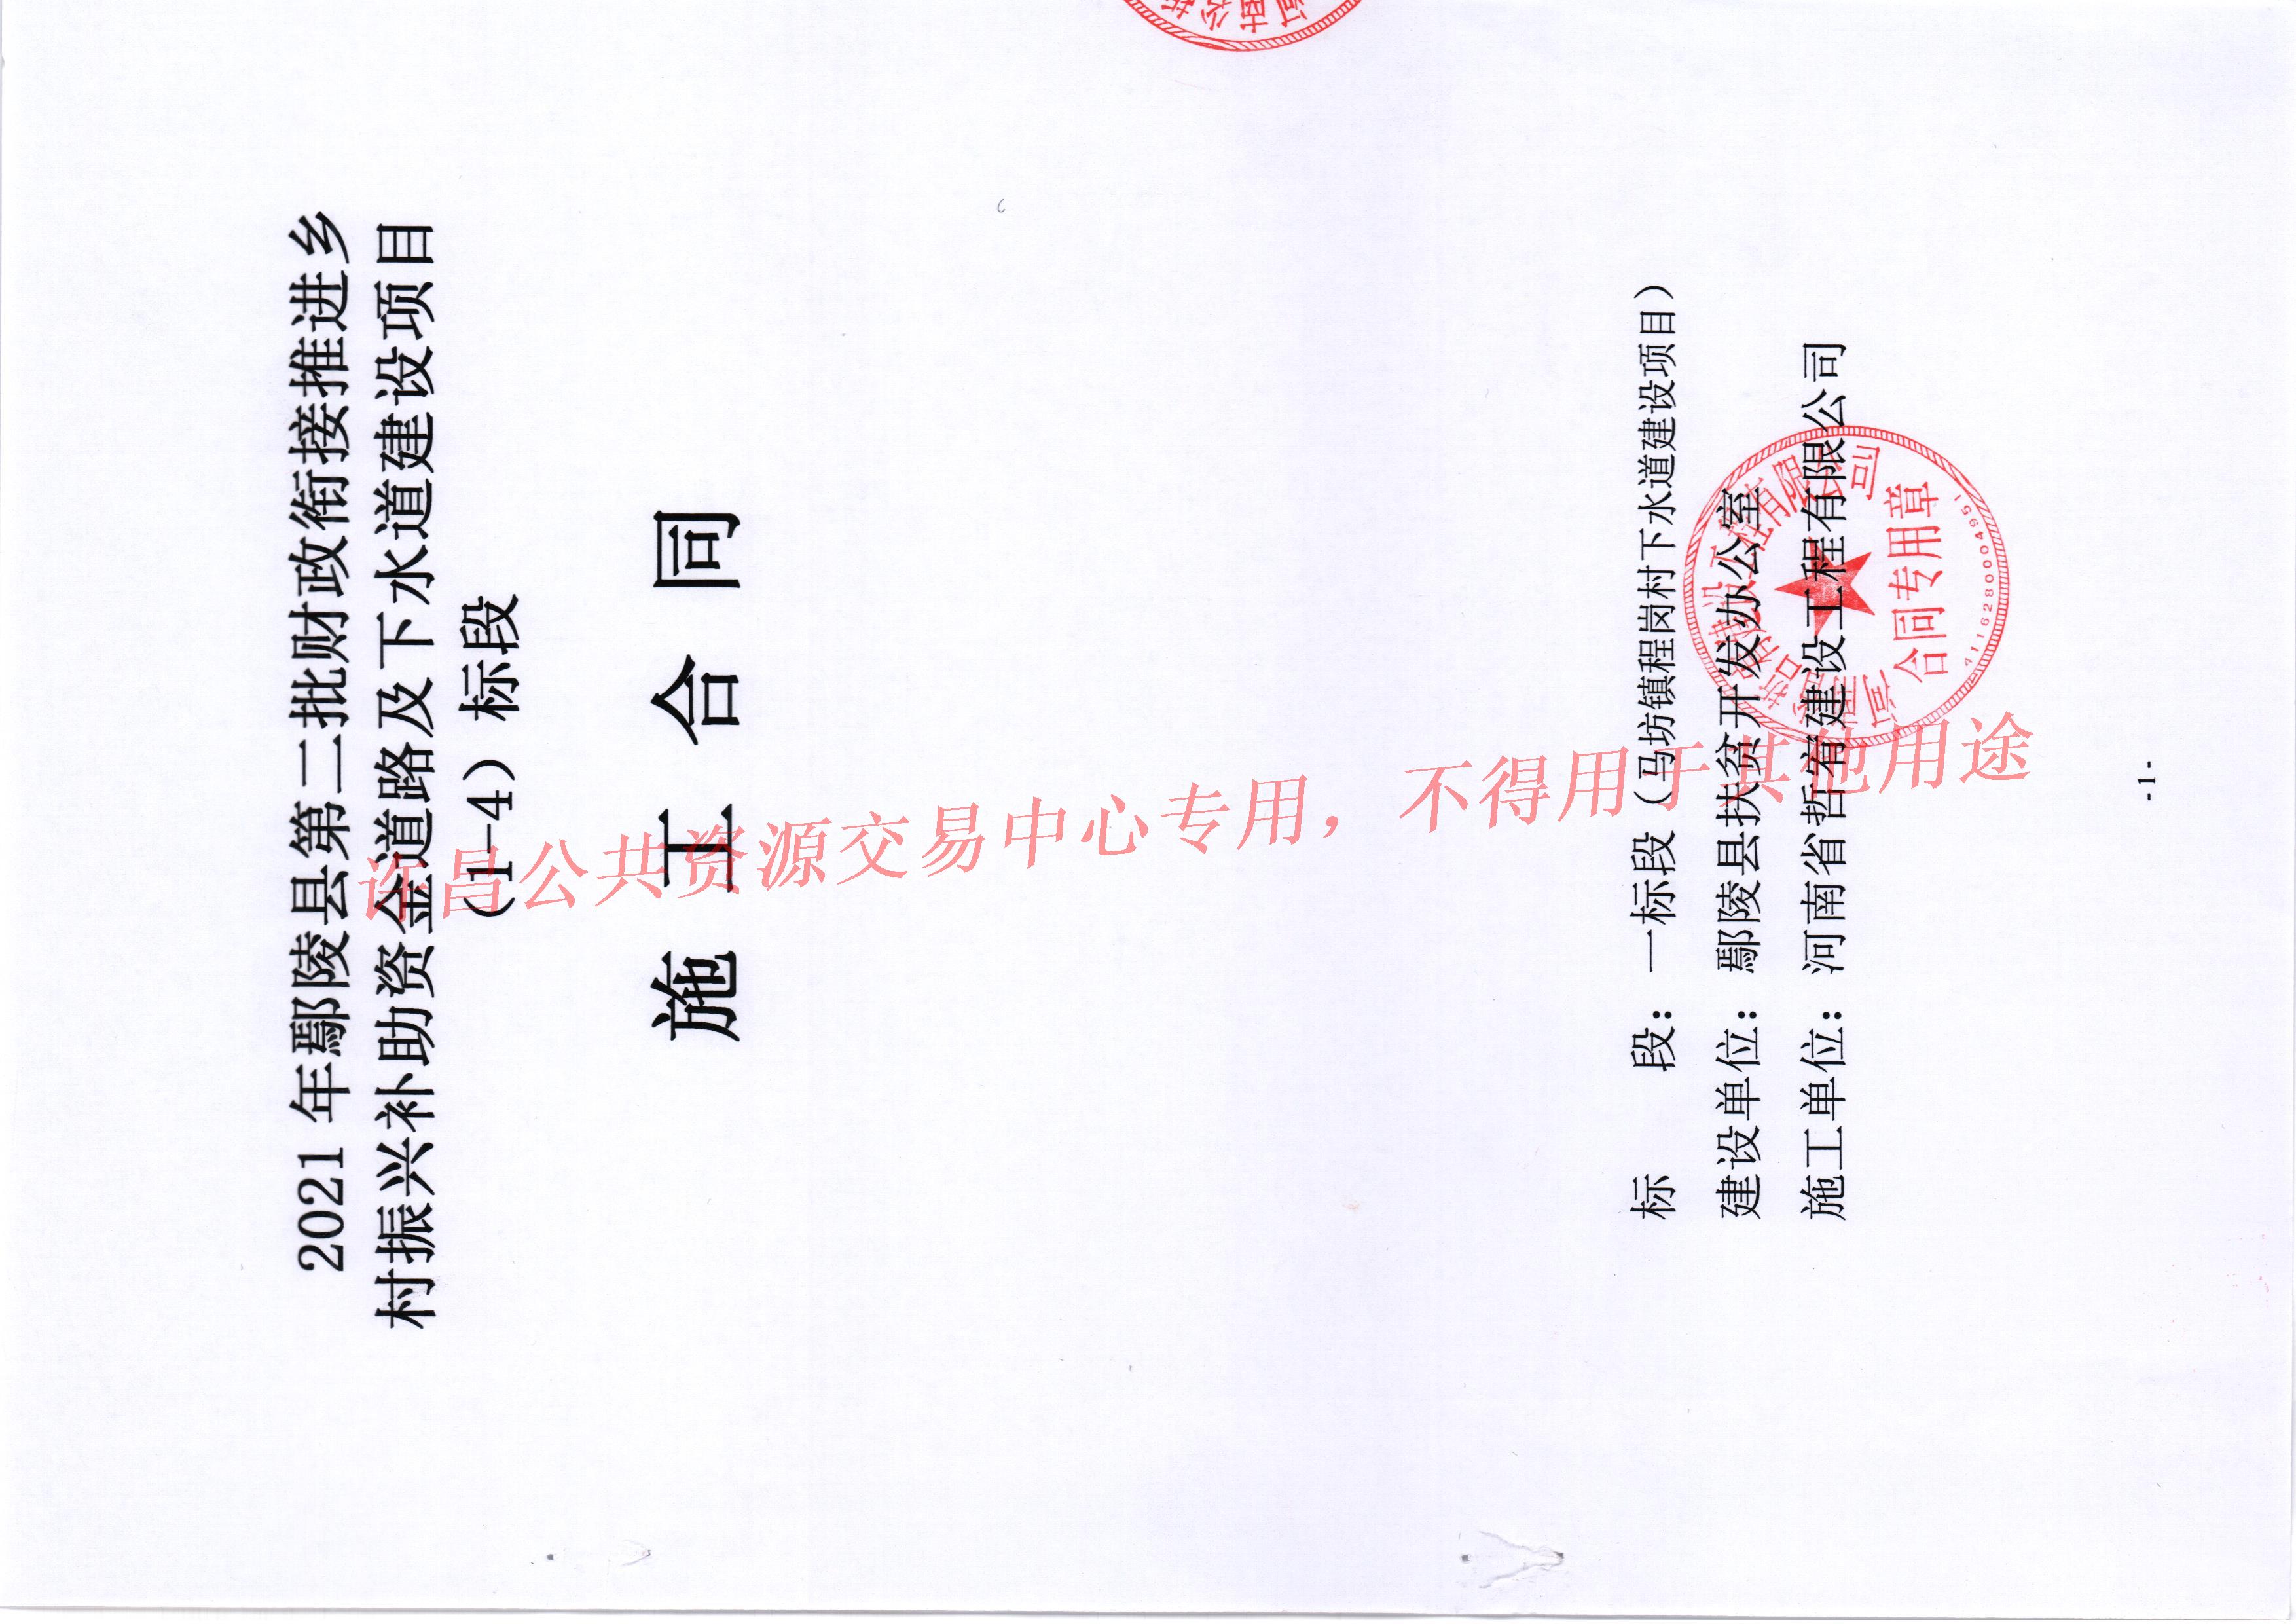 2021 年鄢陵县第二批财政衔接推进乡
村振兴补助资金道路及下水道建设项目
（1-4）标段
施 工 合 同
标 段：一标段（马坊镇程岗村下水道建设项目）
建设单位：鄢陵县扶贫开发办公室
施工单位：河南省哲宥建设工程有限公司
-1-
许昌公共资源交易中心专用，不得用于其他用途
河南省哲宥建设工程有限公司
合同专用章